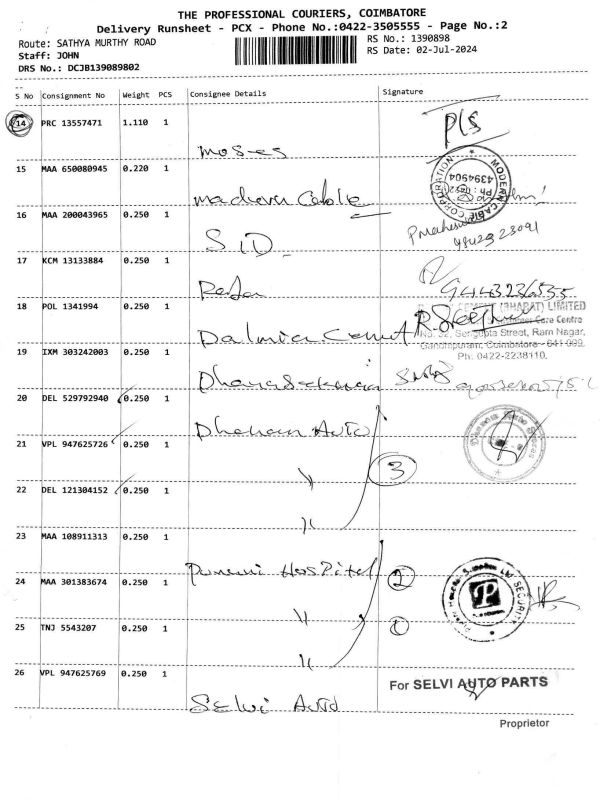 THE PROFESSIONAL COURIERS, COIMBATORE
Delivery Runsheet - PCX - Phone No.:0422-3505555 - Page No.:2
Route: SATHYA MURTHY ROAD
RS No.: 1390898
Staff: JOHN
RS Date: 02-Jul-2024
DRS No.: DCJB139089802
S No Consignment No Weight PCS Consignee Details Signature
14 PRC 13557471 1.110 1
moses
PLS
15 MAA 650080945 0.220 1
MODERN CABLE CORPORATION
4394904
16 MAA 200043965 0.250 1
SID
17 KCM 13133884 0.250 1
18 POL 1341994 0.250 1
Dalmia Cemet
(BHARAT) LIMITED
Care Centre
Sengupta Street, Ram Nagar,
Gandhipuram, Coimbatore - 641 009.
Ph: 0422-2238110.
19 IXM 303242003 0.250 1
Dhanasekaran
20 DEL 529792940 0.250 1
Dhanam Auto
21 VPL 947625726 0.250 1
"
3
22 DEL 121304152 0.250 1
"
23 MAA 108911313 0.250 1
Hospital
2
24 MAA 301383674 0.250 1
"
P
SECURITY
25 TNJ 5543207 0.250 1
"
1
26 VPL 947625769 0.250 1
Selvi Auto
For SELVI AUTO PARTS
Proprietor